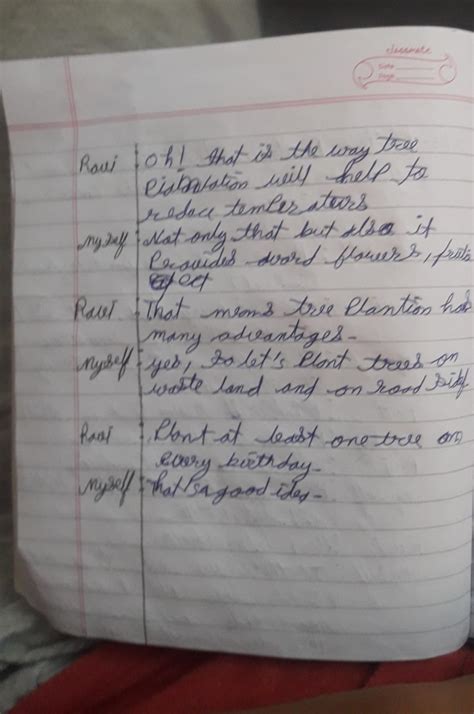 classmate
Date
Page
Ravi : Oh! that is the way tree
Plantation will help to
reduce temberateurs
Myself : Not only that but also it
Provides wood flowers, fruits
ect
Ravi : That means tree Plantion has
many advantages.
Myself : yes, so let's Plant trees on
waste land and on road side
Ravi : Plant at least one tree on
every birthday.
Myself : That's a good idea.